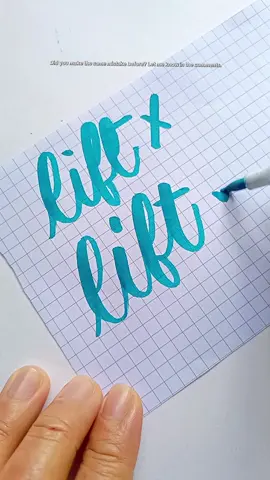 Did you make the same mistake before? Let me know in the comments.
lift x
lift